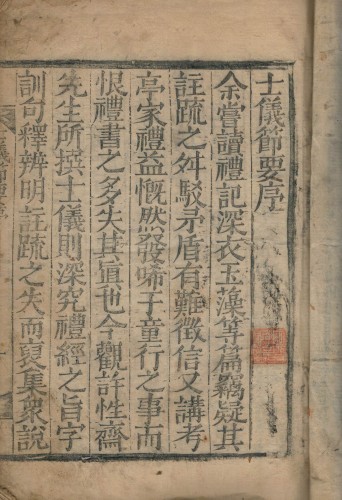 士儀節要序
余嘗讀禮記深衣玉藻等篇竊疑其
註疏之舛駁矛盾有難徵信又講考
亭家禮益慨然發唏于童行之事而
恨禮書之多失其眞也今觀許性齋
先生所撰士儀則深究禮經之旨字
訓句釋辨明註疏之失而裒集衆說